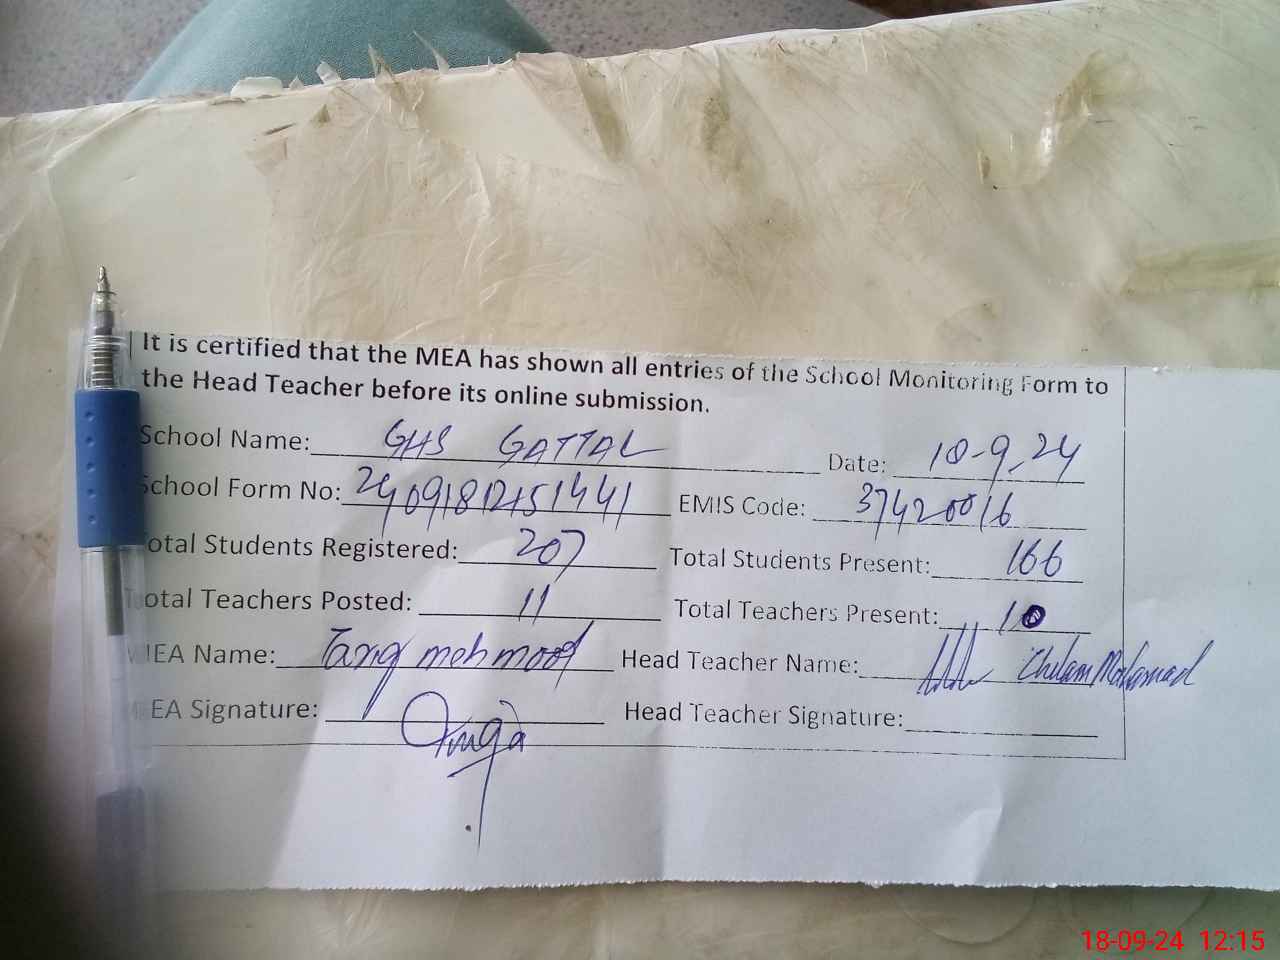 It is certified that the MEA has shown all entries of the School Monitoring Form to
the Head Teacher before its online submission.
School Name: GHS GATTAL Date: 18-9-24
School Form No: 24091812151441 EMIS Code: 37420016
Total Students Registered: 207 Total Students Present: 166
Total Teachers Posted: 11 Total Teachers Present: 10
MEA Name: Tariq mehmood Head Teacher Name:
MEA Signature: Head Teacher Signature:
18-09-24 12:15